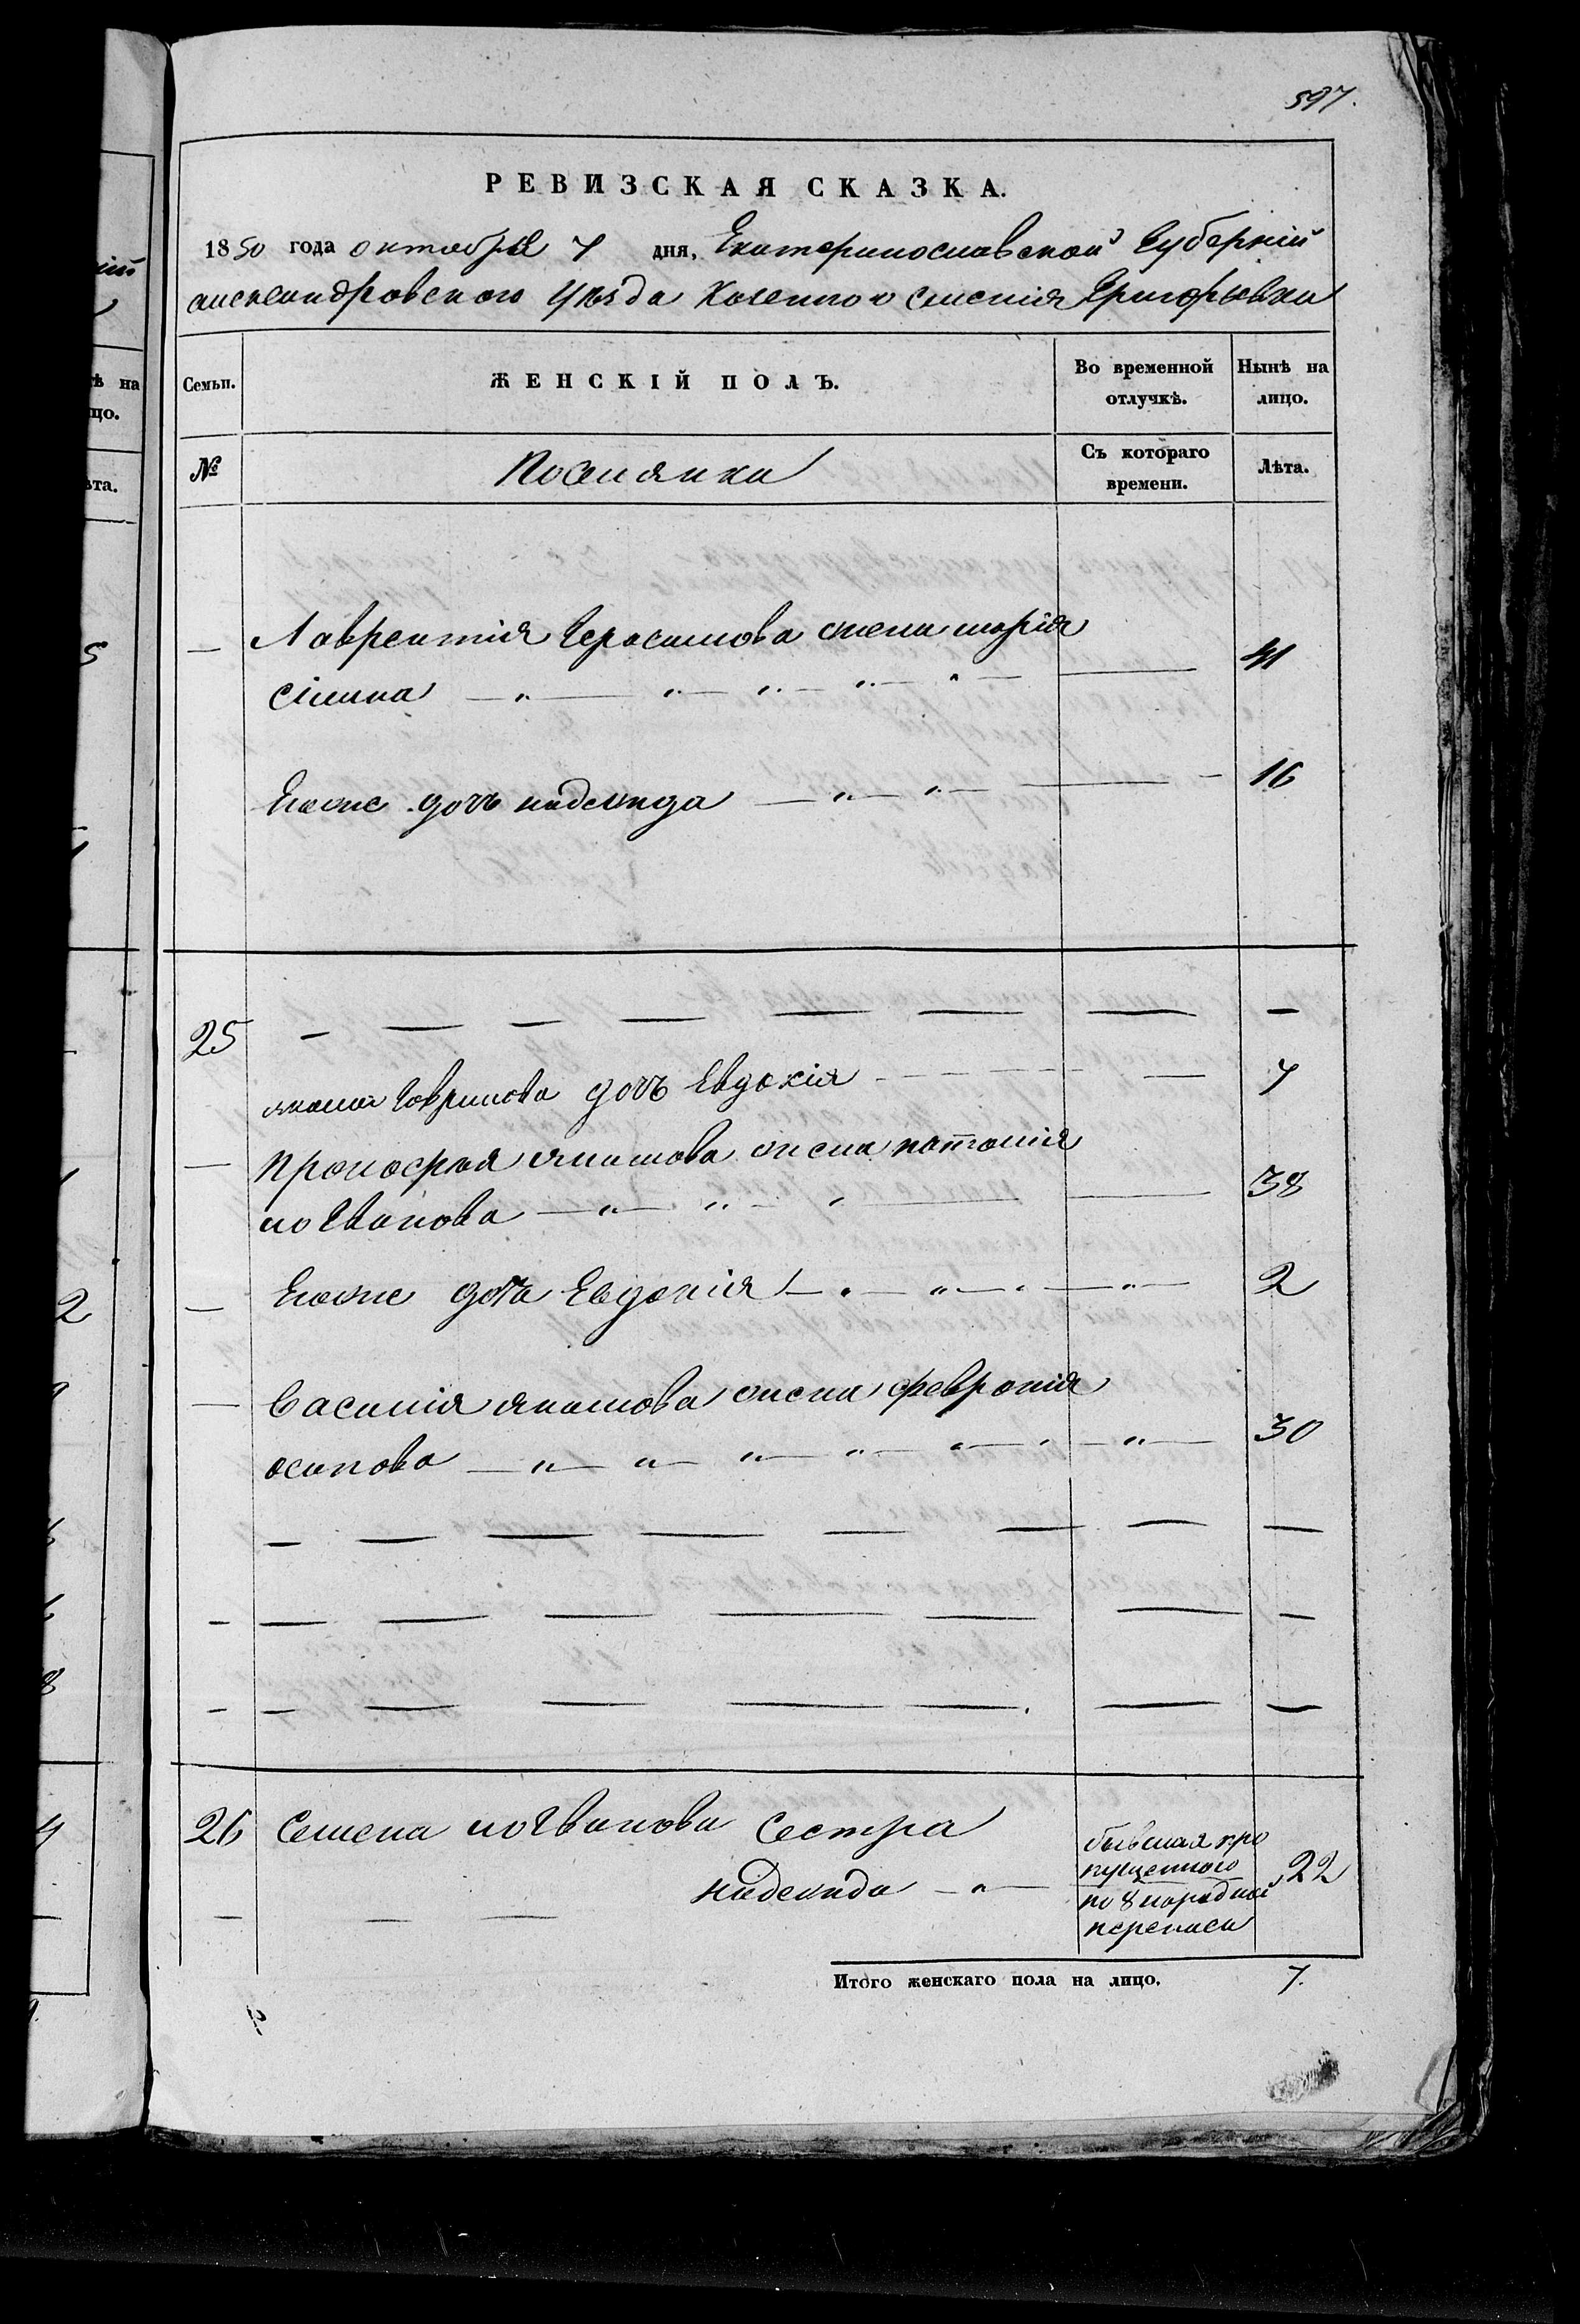 597.
РЕВИЗСКАЯ СКАЗКА.
1850 года октября 7 дня, Екатеринославской Губерніи
александровского Уѣзда Казенного селенія Григорьевки
Семьи. ЖЕНСКІЙ ПОЛЪ. Во временной отлучкѣ. Нынѣ на лицо.
№ Поселянки Съ котораго времени. Лѣта.
— Лаврентія Герасимова жена марія
41
Еговже дочь надежда — 16
25 — — — — — — — —
Гаврилова дочь Евдокія — 7
— Прокофья акимова жена наталія
логвинова — 38
— Еговже дочь Евдокія — 2
— Василія акимова жена февронія
осипова — 30
— — — — — — — —
— — — — — — — —
— — — — — — — —
26 Семена логвинова Сестра
надежда —
бывшая про
пущенного
по 8 народной
переписи
22
Итого женскаго пола на лицо. 7.